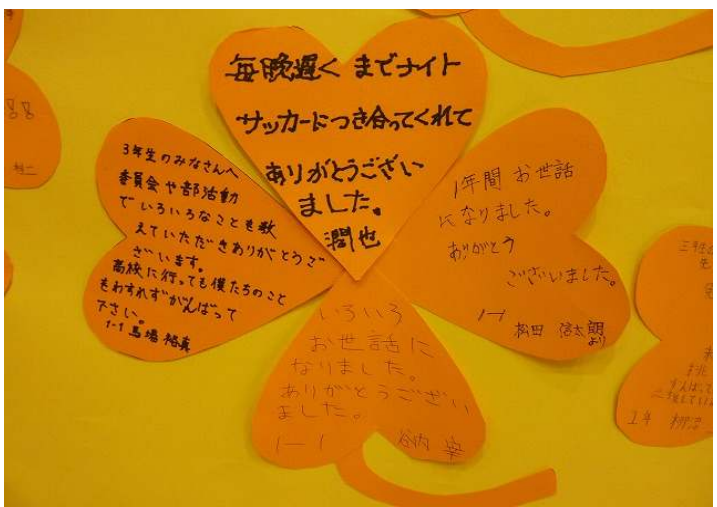 毎晩遅くまでナイト
サッカーにつき合ってくれて
ありがとうござい
ました。
潤也
3年生のみなさんへ
委員会や部活動
でいろいろなことも教
えていただきありがとうご
ざいます。
高校に行っても僕たちのこと
もわすれずがんばって
下さい。
1-1 馬場 裕真
1年間 お世話
になりました。
ありがとう
ございました。
1-1
松田 信太朗
より
いろいろ
お世話に
なりました。
ありがとうござい
ました。
1-1 谷内 宰
1年